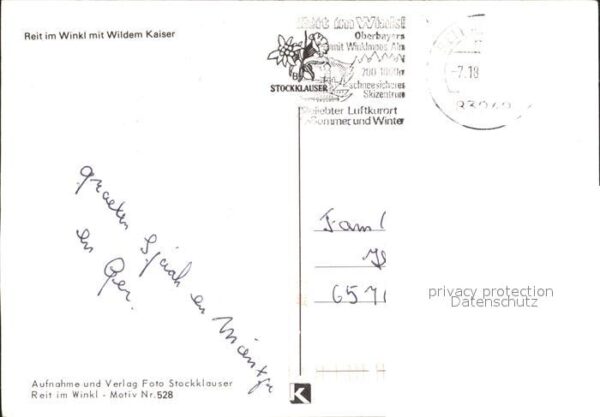 Reit im Winkl mit Wildem Kaiser
Reit im Winkl
Oberbayers
mit Winklmoos Alm
700-1800m
schneesicheres
Skizentrum
STOCKKLAUSER
Beliebter Luftkurort
Sommer und Winter
-7.18
groeten Sjaak en
en Ger.
Fam
657
privacy protection
Datenschutz
Aufnahme und Verlag Foto Stockklauser
Reit im Winkl - Motiv Nr. 528
K